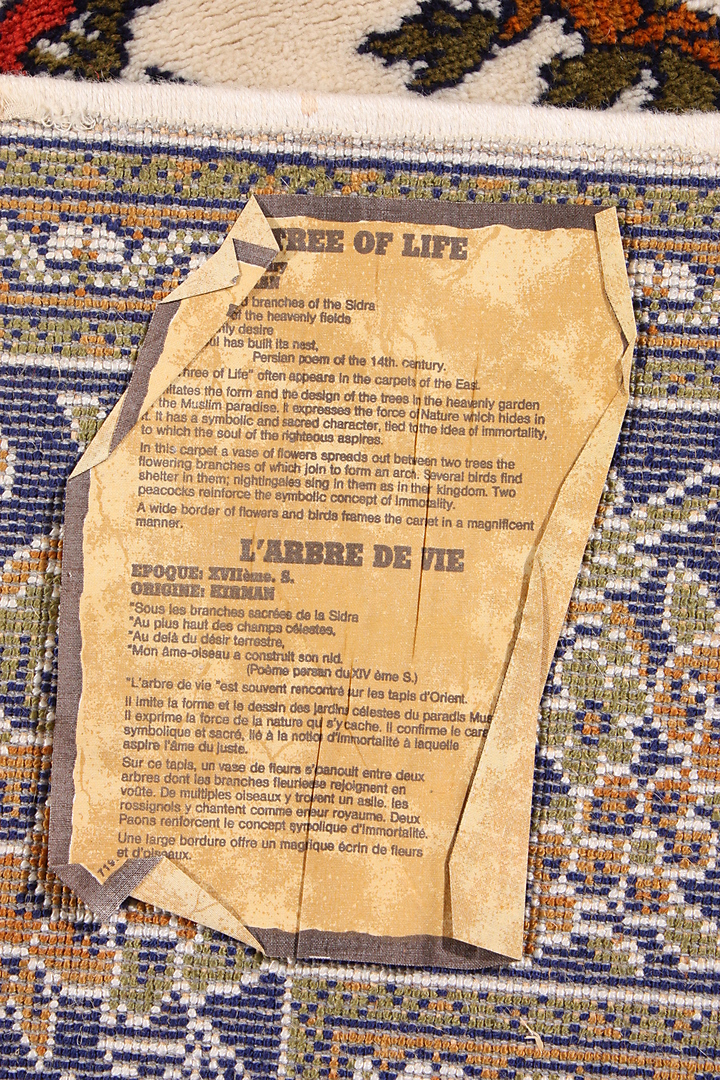 TREE OF LIFE
branches of the Sidra
of the heavenly fields
desire
has built its nest,
Persian poem of the 14th. century.
"Three of Life" often appears in the carpets of the East.
the form and the design of the trees in the heavenly garden
the Muslim paradise. It expresses the force of Nature which hides in
it. It has a symbolic and sacred character, tied to the idea of immortality,
to which the soul of the righteous aspires.
In this carpet a vase of flowers spreads out between two trees the
flowering branches of which join to form an arch. Several birds find
shelter in them; nightingales sing in them as in their kingdom. Two
peacocks reinforce the symbolic concept of immortality.
A wide border of flowers and birds frames the carpet in a magnificent
manner.
L'ARBRE DE VIE
EPOQUE: XVIIème. S.
ORIGINE: KIRMAN
"Sous les branches sacrées de la Sidra
"Au plus haut des champs célestes,
"Au delà du désir terrestre,
"Mon âme-oiseau a construit son nid.
(Poème persan du XIV ème S.)
"L'arbre de vie "est souvent rencontré sur les tapis d'Orient.
Il imite la forme et le dessin des jardins célestes du paradis Mus
Il exprime la force de la nature qui s'y cache. Il confirme le cara
symbolique et sacré, lié à la notion d'immortalité à laquelle
aspire l'âme du juste.
Sur ce tapis, un vase de fleurs s'épanouit entre deux
arbres dont les branches fleuries se rejoignent en
voûte. De multiples oiseaux y trouvent un asile. les
rossignols y chantent comme en leur royaume. Deux
Paons renforcent le concept symbolique d'immortalité.
Une large bordure offre un magnifique écrin de fleurs
et d'oiseaux.
719